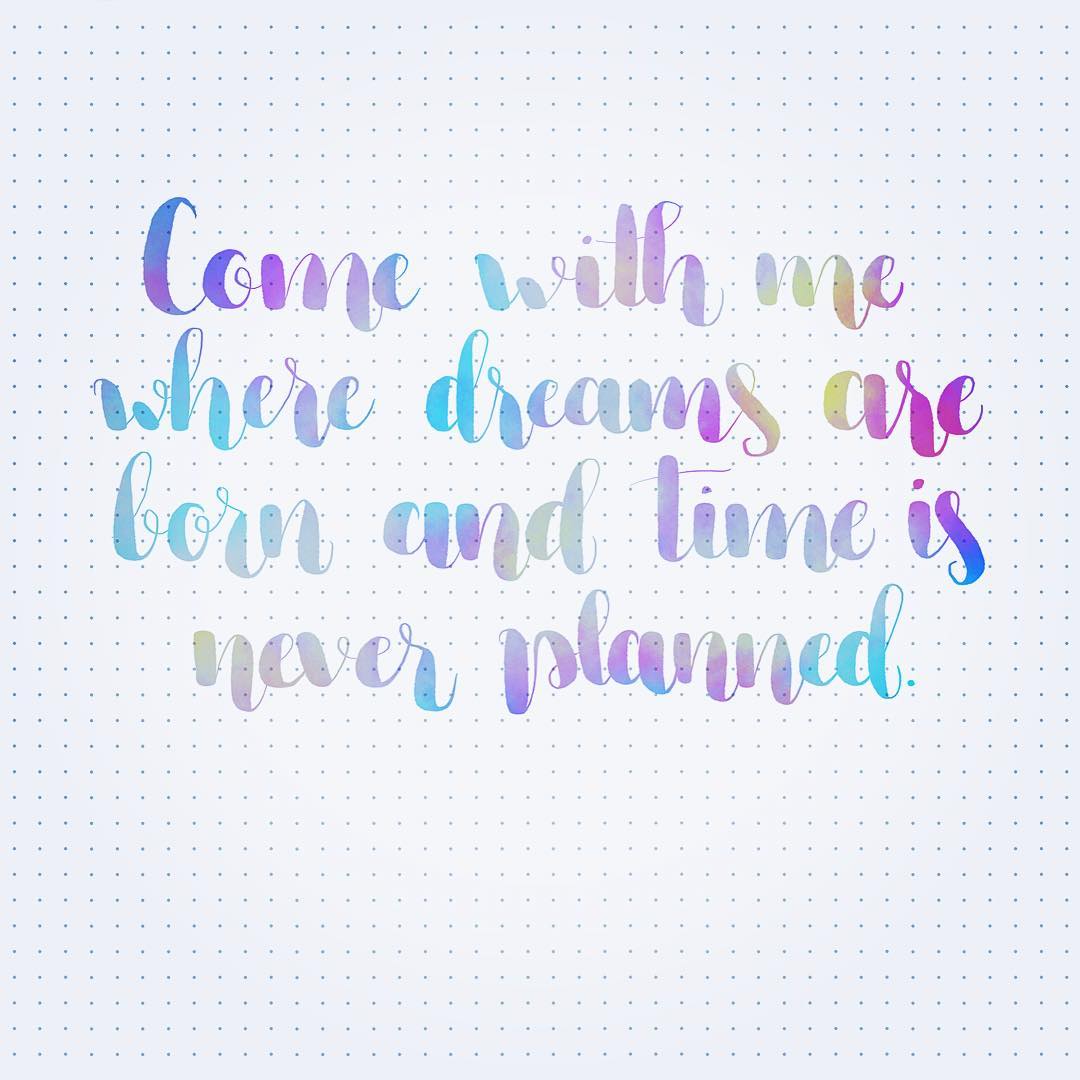 Come with me
where dreams are
born and time is
never planned.